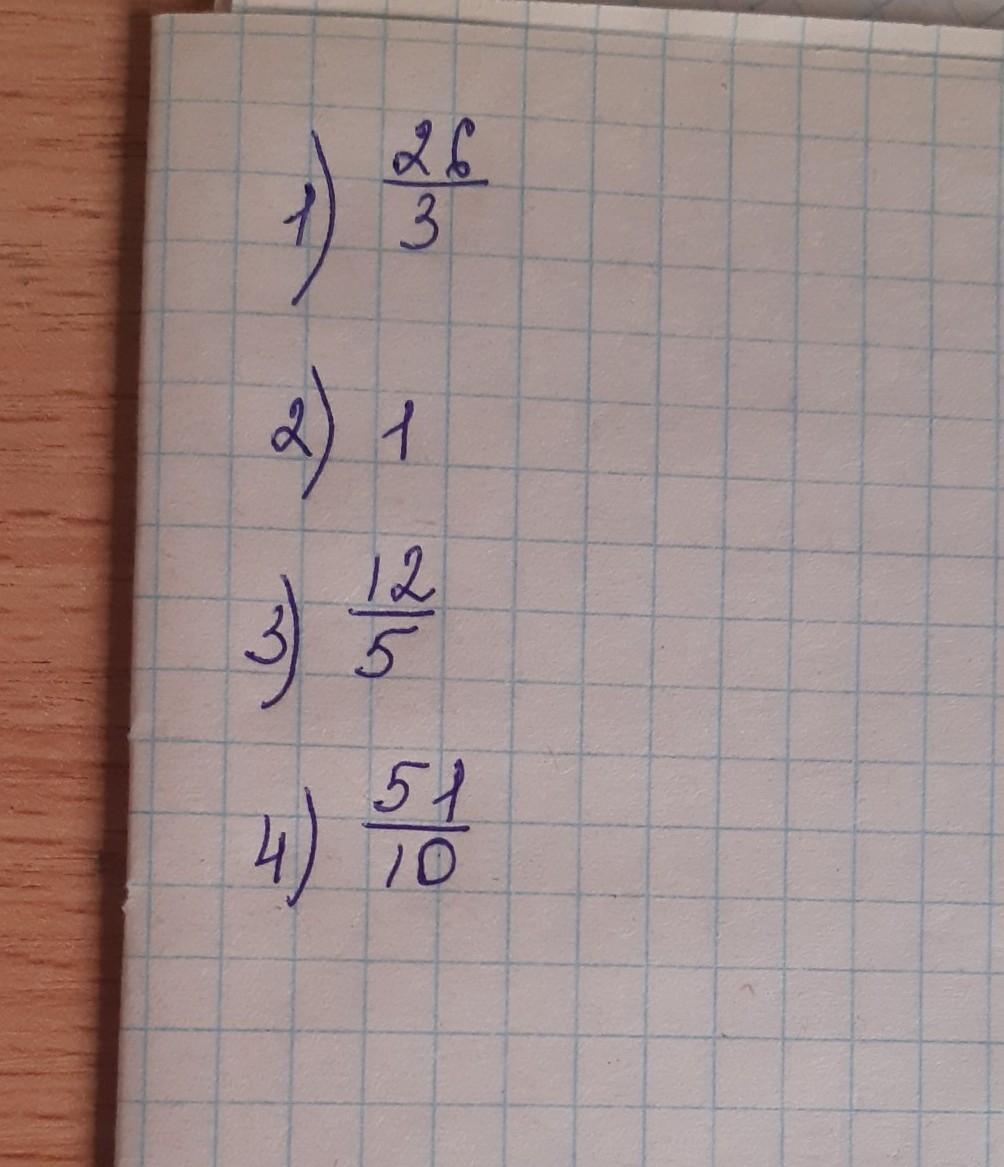 1) 26/3
2) 1
3) 12/5
4) 51/10